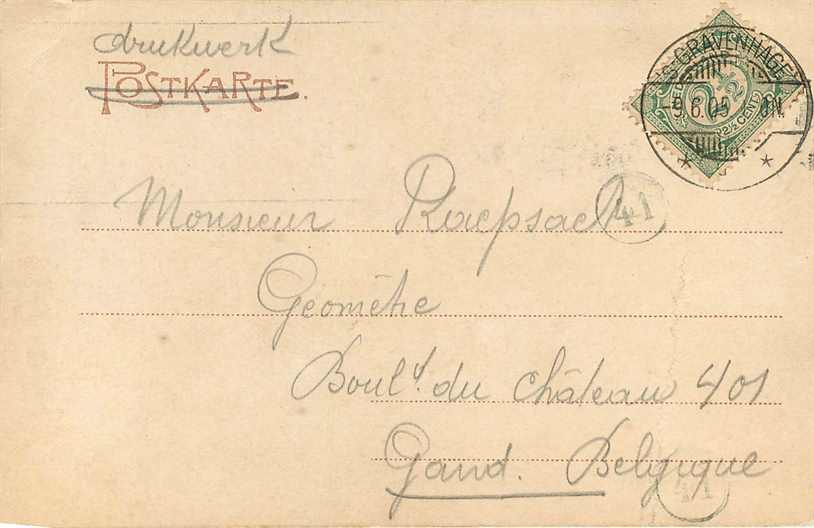 drukwerk
POSTKARTE.
'S-GRAVENHAGE
-9.6.05 N.
2½
2½ CENT
Monsieur Raepsaet
41
Géomètre
Boulᵈ. du Château 401
Gand. Belgique
41